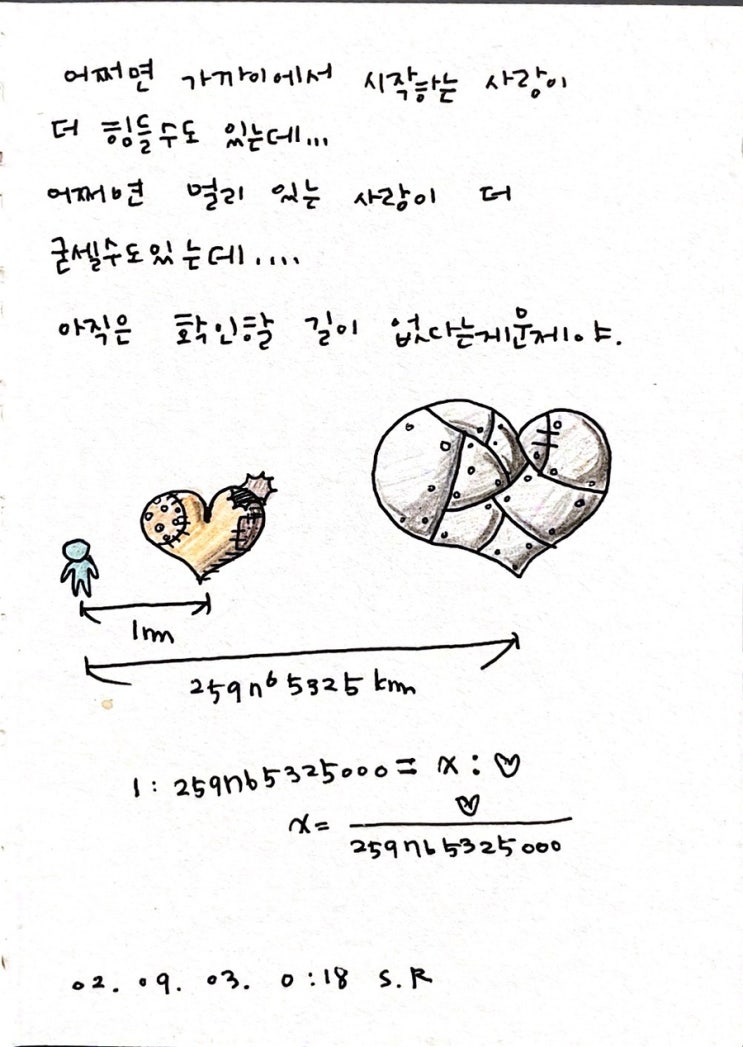 어쩌면 가까이에서 시작하는 사랑이
더 힘들수도 있는데...
어쩌면 멀리 있는 사랑이 더
굳셀수도있는데....
아직은 확인할 길이 없다는게문제야.
1m
259765325 km
1 : 259765325000 = x : ♡
x = ♡
259765325000
02. 09. 03. 0:18 S.R